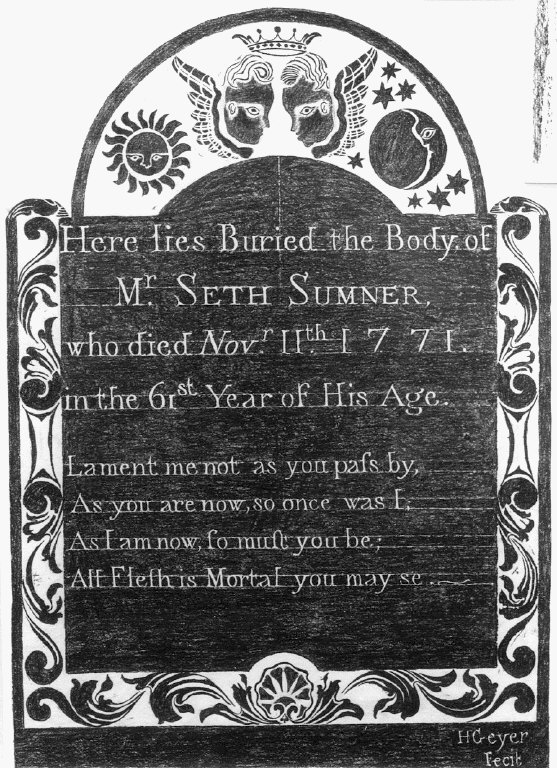 Here lies Buried the Body of
Mr. SETH SUMNER,
who died Novr. 11th. 1771.
in the 61st Year of His Age.
Lament me not as you paſs by,
As you are now, so once was I;
As I am now, ſo muſt you be;
All Fleſh is Mortal you may se
HGeyer
Fecit